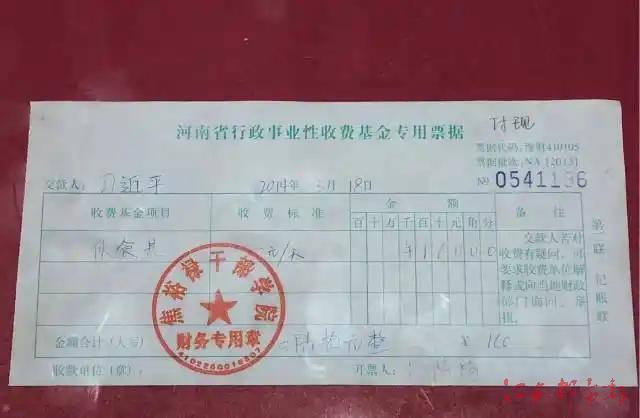 河南省行政事业性收费基金专用票据
付现
票据代码:豫财410105
票据批次:NA [2013]
交款人: 习近平 2014年 3月 18日 № 0541196
收费基金项目 收费标准 金额 备注
百十万千百十元角分
伙食费 元/天
交款人若对
收费有疑问,可
要求收费单位解
释或向当地财政
部门询问、举
报。
第一联 记账联
焦裕禄干部学院
财务专用章
金额合计(大写) 陆拾元整 ¥ 160
收款单位(章): 开票人: